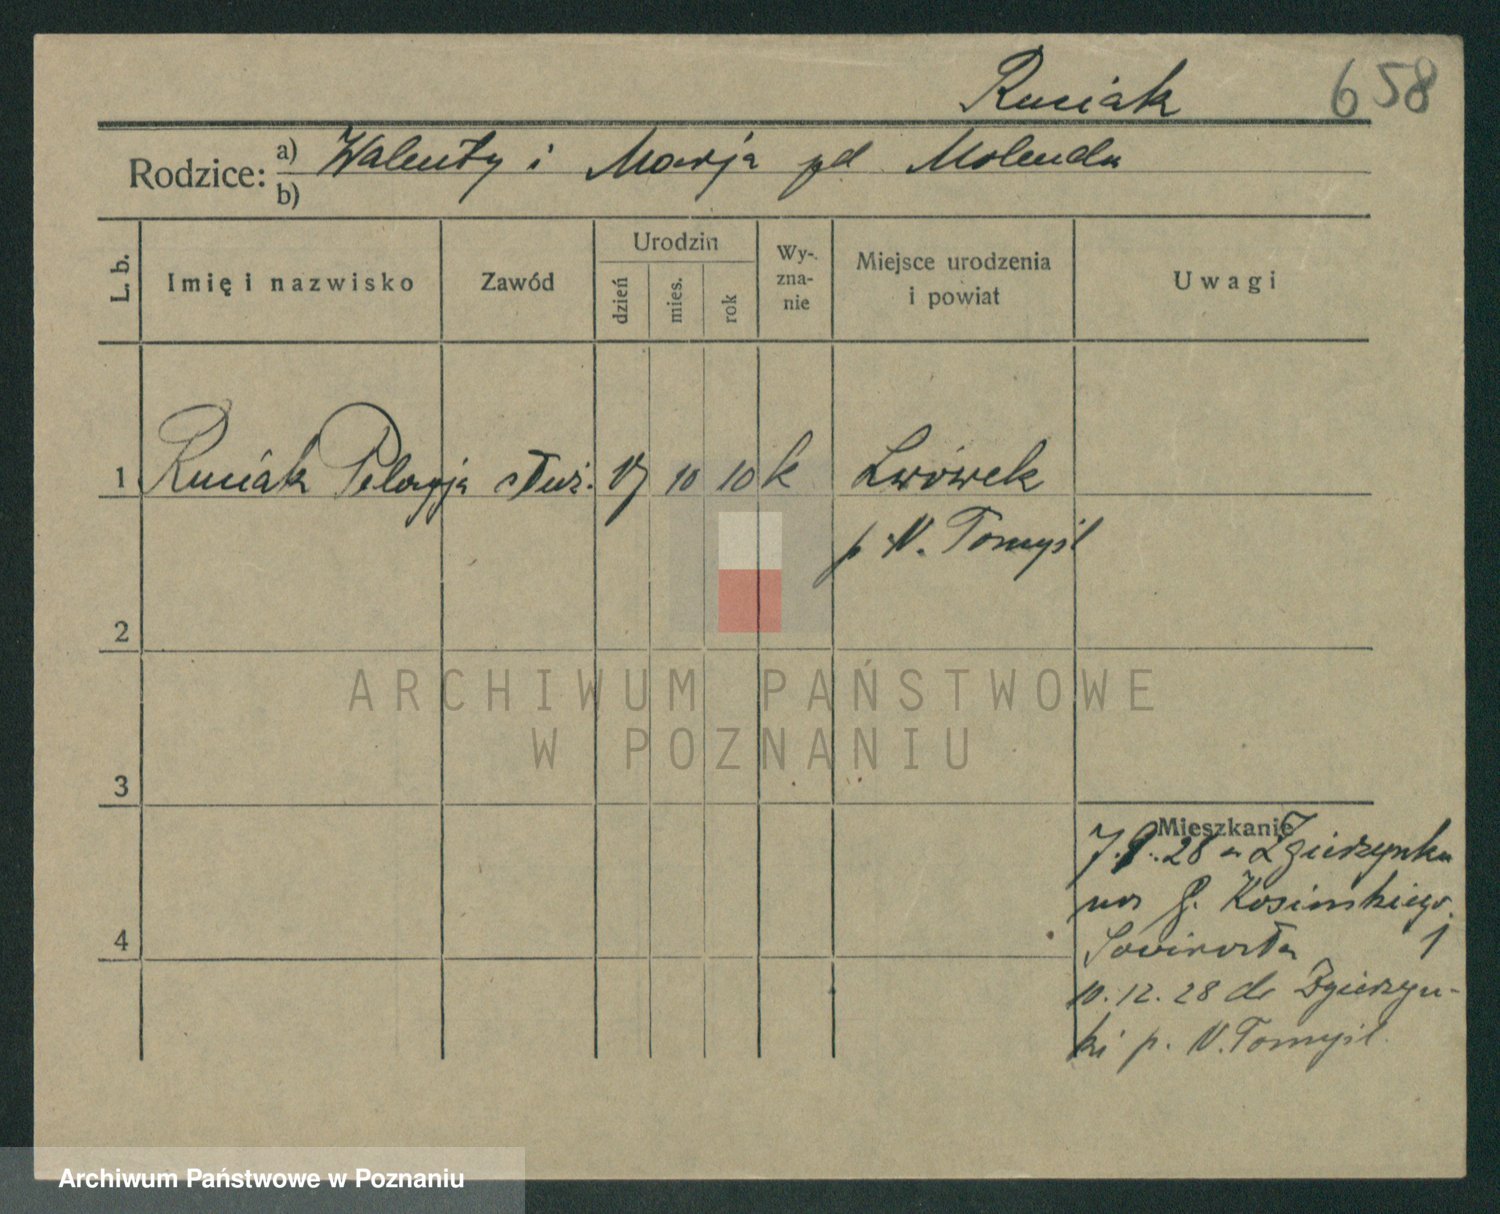 Ruciak 658
Rodzice: a) Walenty i Marja zd Molenda
b)
L. b.
Imię i nazwisko
Zawód
Urodzin
dzień
mies.
rok
Wy-
zna-
nie
Miejsce urodzenia
i powiat
Uwagi
1 Ruciak Pelagja służ. 17 10 10 k Lwówek
p. N. Tomyśl
2
ARCHIWUM PAŃSTWOWE
W POZNANIU
3
Mieszkanie
28 Zgierzynka
G. Kosinskiego
4
10.12.28 do Zgierzyn-
ki p. N. Tomyśl.
Archiwum Państwowe w Poznaniu